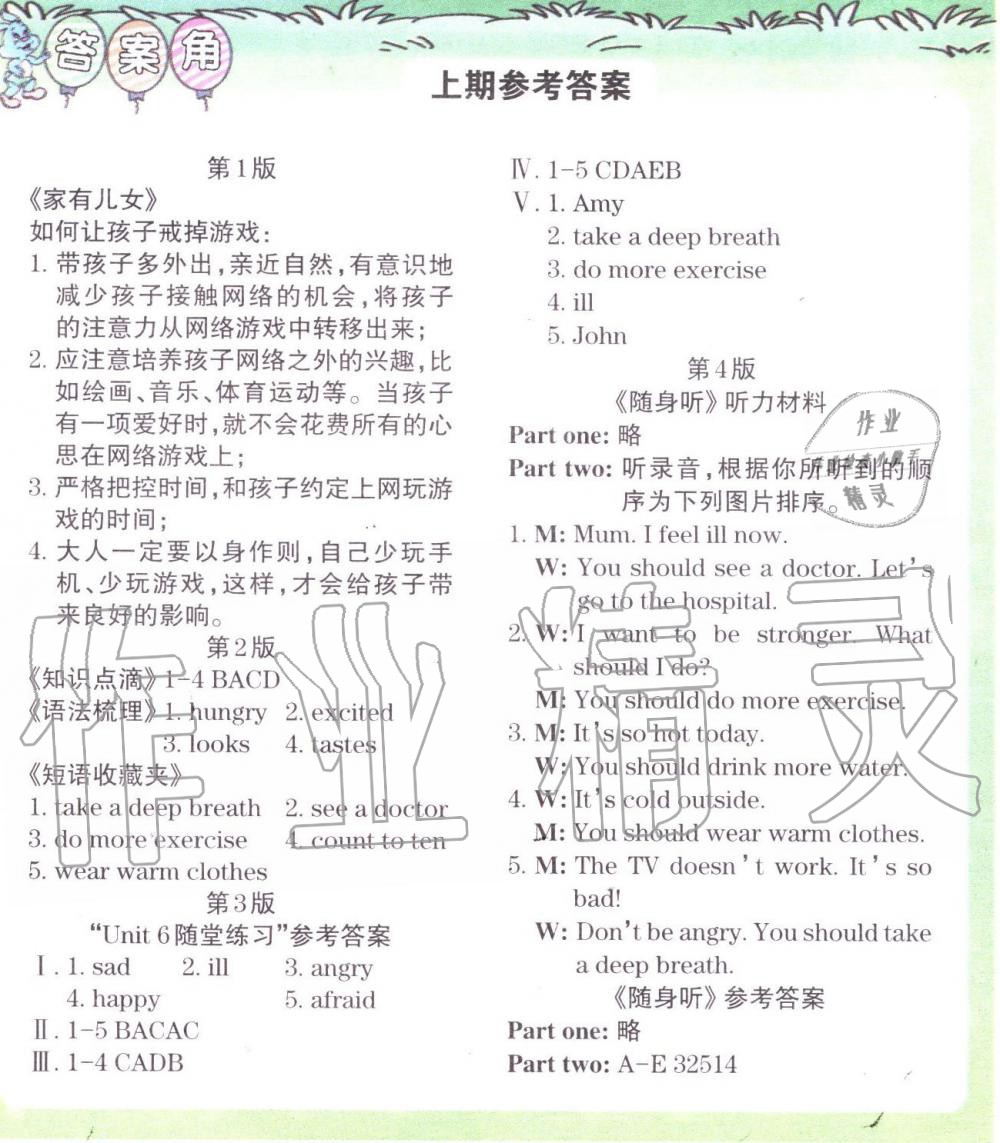 答案角
上期参考答案
第1版
《家有儿女》
如何让孩子戒掉游戏：
1. 带孩子多外出，亲近自然，有意识地
减少孩子接触网络的机会，将孩子
的注意力从网络游戏中转移出来；
2. 应注意培养孩子网络之外的兴趣，比
如绘画、音乐、体育运动等。当孩子
有一项爱好时，就不会花费所有的心
思在网络游戏上；
3. 严格把控时间，和孩子约定上网玩游
戏的时间；
4. 大人一定要以身作则，自己少玩手
机、少玩游戏，这样，才会给孩子带
来良好的影响。
第2版
《知识点滴》1-4 BACD
《语法梳理》1. hungry 2. excited
3. looks 4. tastes
《短语收藏夹》
1. take a deep breath 2. see a doctor
3. do more exercise 4. count to ten
5. wear warm clothes
第3版
“Unit 6随堂练习”参考答案
Ⅰ. 1. sad 2. ill 3. angry
4. happy 5. afraid
Ⅱ. 1-5 BACAC
Ⅲ. 1-4 CADB
Ⅳ. 1-5 CDAEB
Ⅴ. 1. Amy
2. take a deep breath
3. do more exercise
4. ill
5. John
第4版
《随身听》听力材料
Part one: 略
Part two: 听录音，根据你所听到的顺
序为下列图片排序。
1. M: Mum. I feel ill now.
W: You should see a doctor. Let's
go to the hospital.
2. W: I want to be stronger. What
should I do?
M: You should do more exercise.
3. M: It's so hot today.
W: You should drink more water.
4. W: It's cold outside.
M: You should wear warm clothes.
5. M: The TV doesn't work. It's so
bad!
W: Don't be angry. You should take
a deep breath.
《随身听》参考答案
Part one: 略
Part two: A-E 32514
作业
精灵
作业精灵